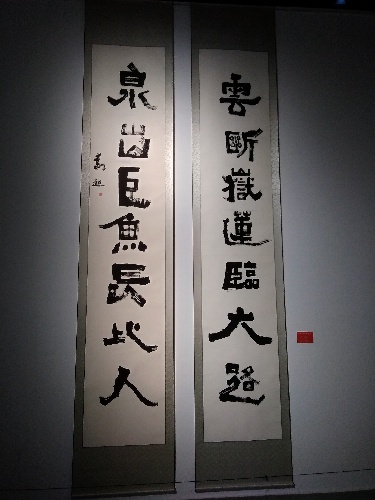 雲断嶽蓮臨大路
泉出巨魚長比人